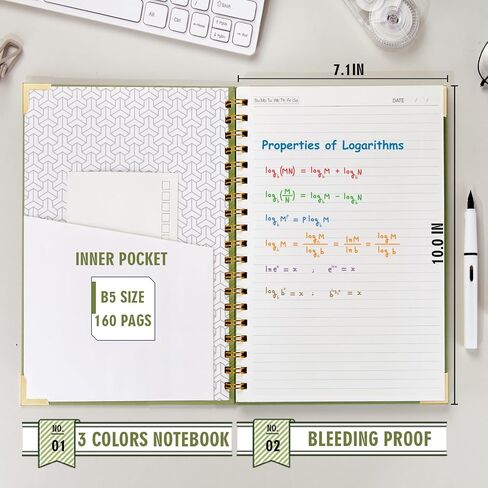 7.1IN
Su Mo Tu We Th Fr Sa
DATE / /
Properties of Logarithms
log_b(MN) = log_b M + log_b N
log_b(M/N) = log_b M - log_b N
log_b M^p = P log_b M
log_b M = log M / log b = ln M / ln b = log M / log b
ln e^x = x ; e^(ln x) = x
log_b b^x = x ; b^(log_b x) = x
10.0 IN
INNER POCKET
B5 SIZE
160 PAGS
NO.
01
3 COLORS NOTEBOOK
NO.
02
BLEEDING PROOF